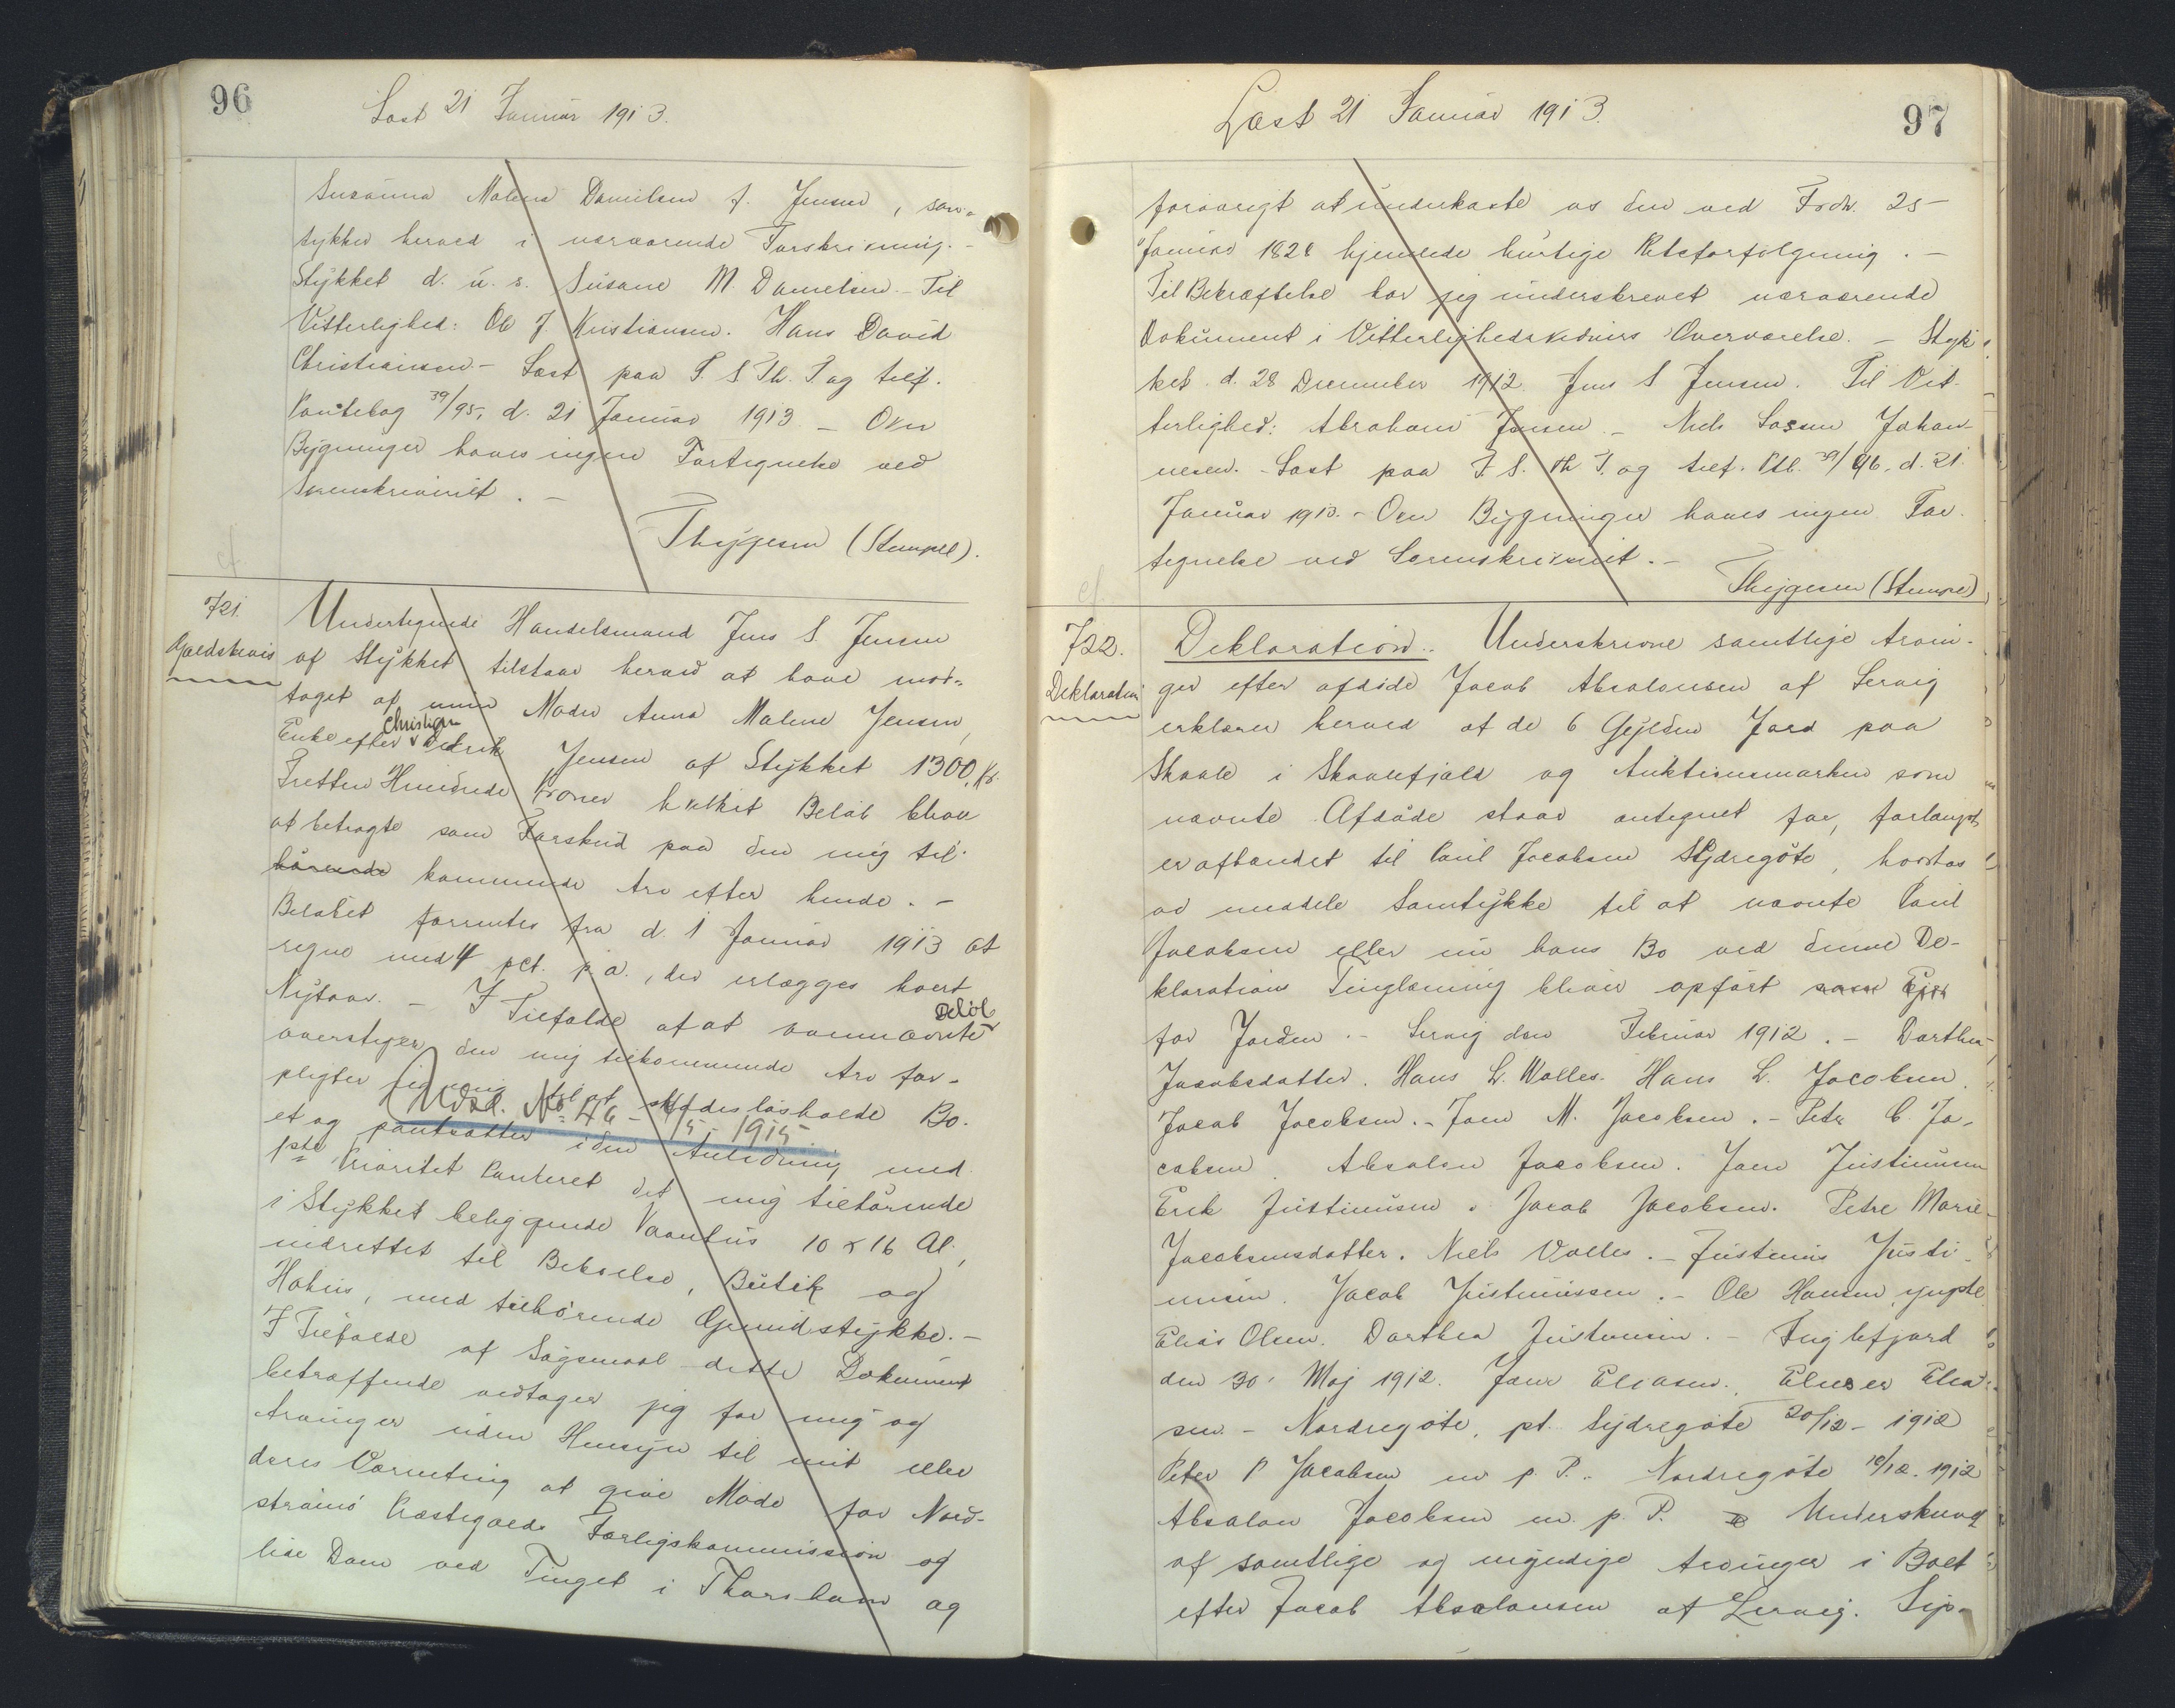 96
Læst 21 Januar 1913.
Susanna Malena Danielsen f. Jensen, sam-
tykker herved i nærværende Forskrivning. -
Stykket d. u. s. Susane M. Danielsen - Til
Vitterlighed: Ole J. Kristiansen. Hans David
Christiansen - Læst paa S. S Th. T og tilf.
Pantebog 39/95, d. 21 Januar 1913 - Over
Bygninger haves ingen Fortegnelse ved
Sorenskriveriet. -
Thygesen (Stempel).
cf
721.
Gældsbevis
Undertegnede Handelsmand Jens S. Jensen
af Stykket tilstaar herved at have mod-
taget af min Moder Anna Malene Jensen,
Enke efter Christian Didrik Jensen af Stykket 1300, Kr.
Tretten Hundrede Kroner hvilket Beløb bliver
at betragte som Forskud paa den mig til-
hørende kommende Arv efter hende. -
Beløbet forrentes fra d. 1 Januar 1913 at
regne med 4 pct. p. a., der erlægges hvert
Nytaar. - I Tilfælde af at ovennævnte Beløb
overstiger den mig tilkommende Arv for-
pligter jeg mig til at skadesløsholde Bo-
(Udsl. No 46 - 4/5 - 1915.
et og pantsætter i den Anledning med
1ste Prioritet Panteret det mig tilhørende
i Stykket beliggende Vaanhus 10 x 16 Al.,
indrettet til Beboelse, Butik og
Høhus, med tilhørende Grundstykke. -
I Tilfælde af Søgsmaal dette Dokument
betræffende vedtager jeg for mig og
Arvinger uden Hensyn til mit eller
deres Værneting at give Møde for Nord-
strømø Præstegælds Forligskommission og
lide Dom ved Tinget i Thorshavn og
Læst 21 Januar 1913.
97
forøvrigt at underkaste os den ved Frdn. 25
Januar 1828 hjemlede hurtige Retsforfølgning. -
Til Bekræftelse har jeg underskrevet nærværende
Dokument i Vitterlighedsvidners Overværelse. - Styk-
ket d. 28 December 1912. Jens S Jensen. Til Vit-
terlighed: Abraham Jensen - Niels Sasen Johan-
nesen. - Læst paa S. S. Th T. og tilf. Ptb. 39/96. d. 21.
Januar 1913. - Over Bygninger haves ingen For-
tegnelse ved Sorenskriveriet. -
Thygesen (Stempel)
cf.
722.
Deklaration
Deklaration. Underskrevne samtlige Arvin-
ger efter afdøde Jacob Absalonsen af Lervig
erklærer herved at de 6 Gylden Jord paa
Skaale i Skaalefjald og Auktionsmarken som
nævnte Afdøde staar antegnet for, forlængst
er afhændet til Poul Jacobsen Sydregøte, hvorfor
vi meddele Samtykke til at nævnte Poul
Jacobsen eller nu hans Bo ved denne De-
klarations Tinglæsning bliver opført som Ejer
for Jorden. - Lervig den Februar 1912. - Dorthea
Jacobsdatter. Hans L. Walles. Hans L. Jacobsen.
Jacob Jacobsen. - Joen M. Jacobsen. - Peter C. Ja-
cobsen. Absalon Jacobsen. Joen Justinusen
Erik Justinusen. Jacob Jacobsen. Petre Marie
Jacobsensdatter. Niels Valles. - Justinus Justi-
nusen. Jacob Justinussen. - Ole Hansen, yngste
Elias Olsen. Dorthea Justinusen. - Fuglefjord
den 30. Maj 1912. Joen Eliasen., Elieser Elia-
sen. - Nordregøte, pt. Sydregøte 20/12 - 1912
Peter P Jacobsen m p. P.. Nordregøte 10/12. 1912
Absalon Jacobsen m. p. P. Underskrevet
af samtlige og myndige Arvinger i Boet
efter Jacob Absalonsen af Lervig. Syd-